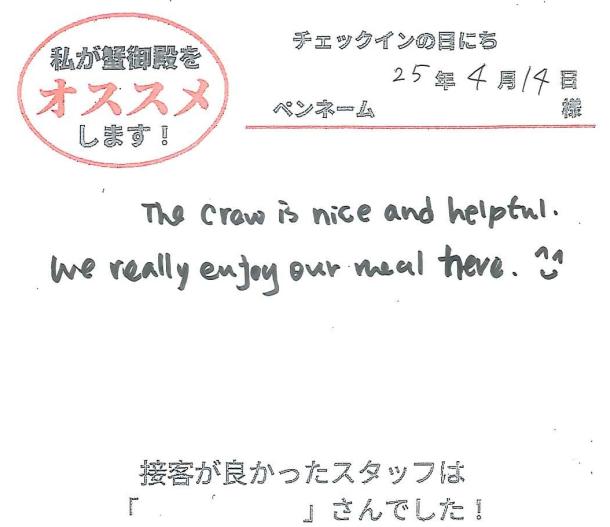 私が蟹御殿を
オススメ
します！
チェックインの日にち
25年4月14日
ペンネーム 様
The crew is nice and helpful.
We really enjoy our meal here. ^^
接客が良かったスタッフは
「 」さんでした！